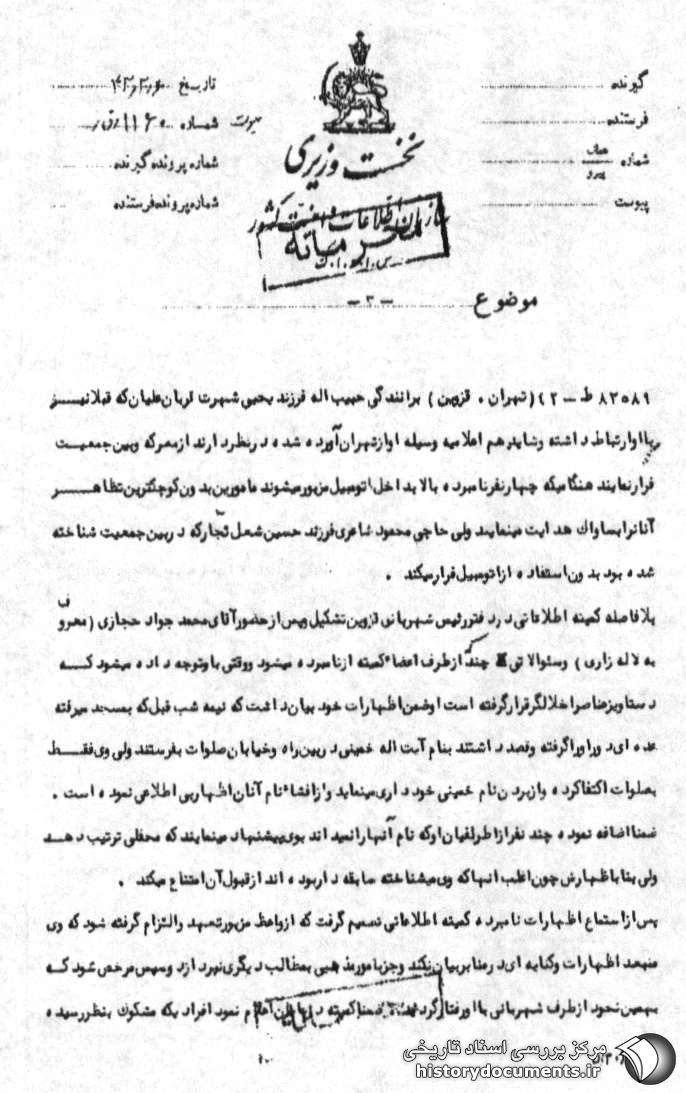 گیرنده
فرستنده
شماره عطف پیرو
پیوست
نخست وزیری
سازمان اطلاعات و امنیت کشور
س.ا.و.ا.ک
تاریخ
شماره
شماره پرونده گیرنده
شماره پرونده فرستنده
موضوع
- ۳ -
۸۳۵۸۹ ط - ۴۲ (تهران . قزوین) برانندگی حبیب اله فرزند یحیی شهرت قربان علیان که قبلا نیز
با او ارتباط داشته و شاید هم اعلامیه وسیله او از تهران آورده شده در نظر دارند از معرکه و بین جمعیت
فرار نمایند هنگامیکه چهار نفر نامبرده بالا بداخل اتومبیل مزبور میشوند مامورین بدون کوچکترین تظاهر
آنانرا بساواك هدایت مینمایند ولی حاجی محمود شاعری فرزند حسین شغل تجار که در بین جمعیت شناخته
شده بود بدون استفاده از اتومبیل فرار میکند .
بلافاصله کمیته اطلاعاتی در دفتر رئیس شهربانی قزوین تشکیل و پس از حضور آقای محمد جواد حجازی (معروف
به لاله زاری) و سئوالاتی چند که از طرف اعضاء کمیته از نامبرده میشود و وقتی باو توجه داده میشود که
دستاویز عناصر اخلالگر قرار گرفته است او ضمن اظهارات خود بیان داشت که نیمه شب قبل که بمسجد میرفته
عده ای دور او را گرفته و قصد داشتند بنام آیت اله خمینی در بین راه و خیابان صلوات بفرستند ولی وی فقط
بصلوات اکتفا کرده و از بردن نام خمینی خودداری مینماید و از افشاء نام آنان اظهار بی اطلاعی نموده است .
ضمنا اضافه نموده چند نفر از اطرافیان او که نام آنها را نمیداند بوی پیشنهاد مینمایند که محفلی ترتیب دهد
ولی بنا باظهارش چون اغلب آنها که وی میشناخته سابقه دار بوده اند از قبول آن امتناع میکند .
پس از استماع اظهارات نامبرده کمیته اطلاعاتی تصمیم گرفت که از واعظ مزبور تعهد و التزام گرفته شود که وی
منبعد اظهارات و کنایه ای در منابر بیان نکند و جز بامور مذهبی بمطالب دیگری نپردازد و سپس مرخص شود که
بهمین نحو از طرف شهربانی با او رفتار گردید ضمنا کمیته نمود افرادیکه مشکوك بنظر رسیده
مرکز بررسی اسناد تاریخی
historydocuments.ir